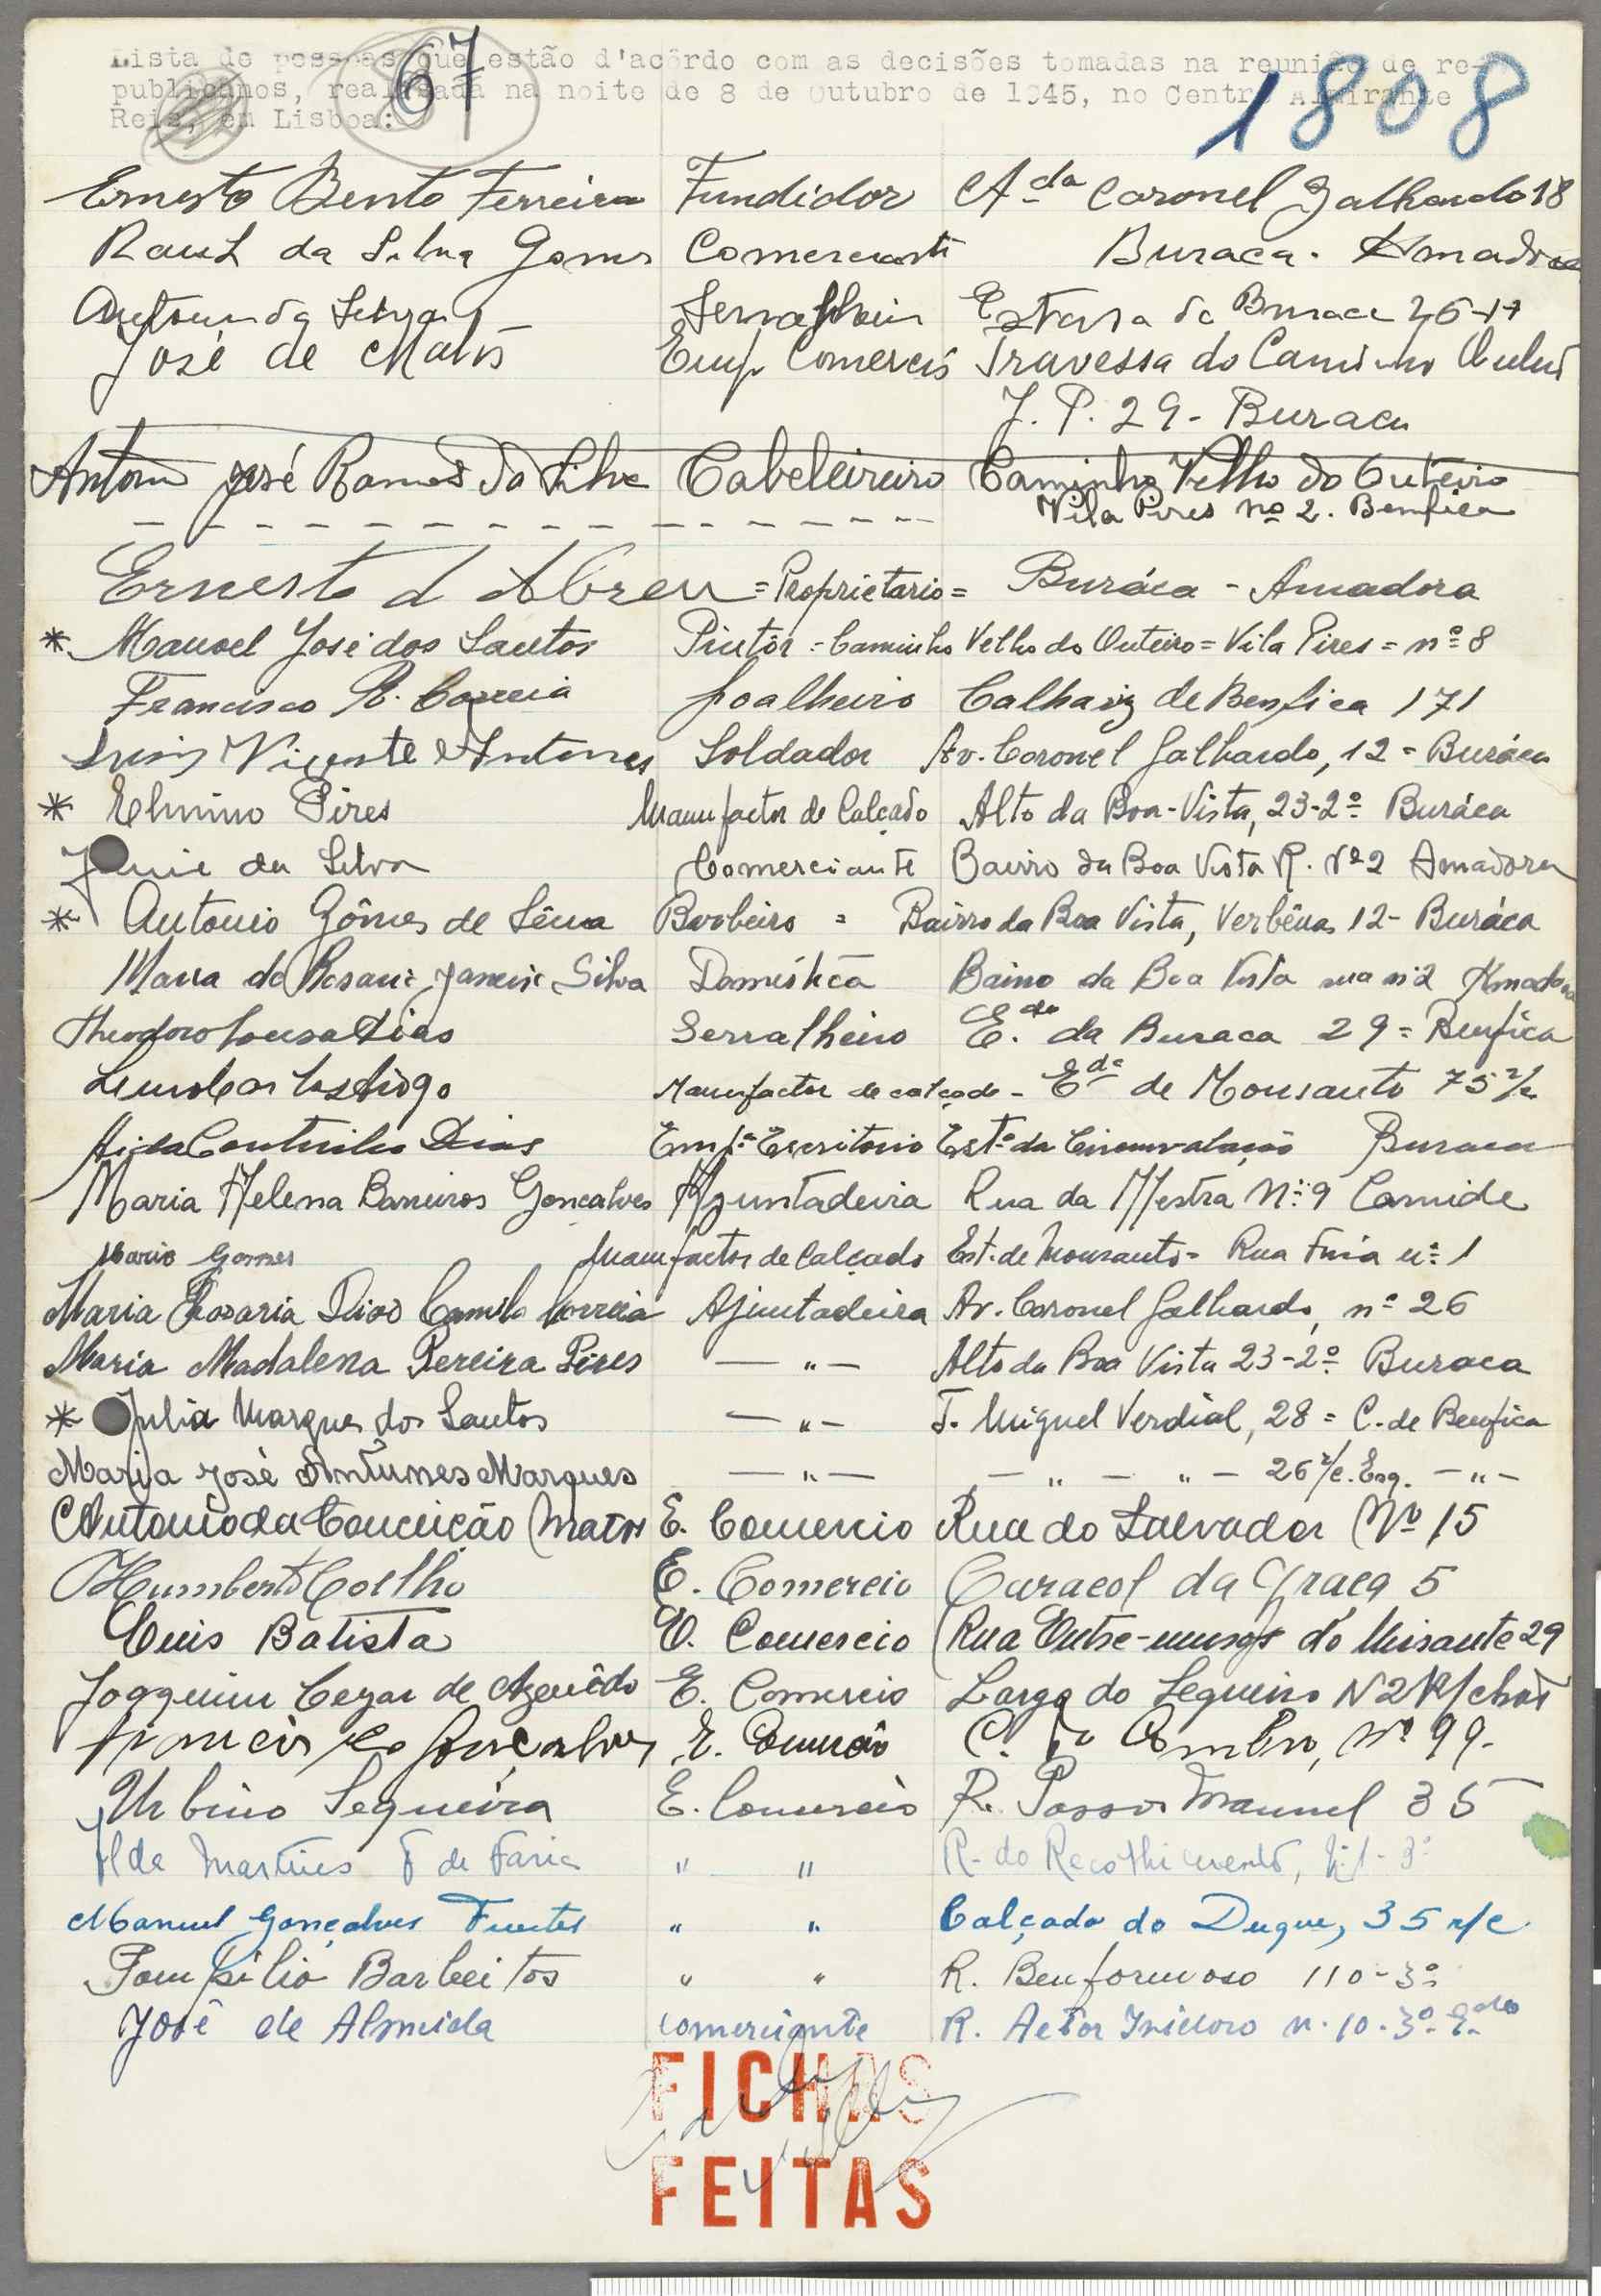 Lista de pessoas que estão d'acôrdo com as decisões tomadas na reunião de re-
publicanos, realisada na noite de 8 de Outubro de 1945, no Centro Almirante
Reis, em Lisboa:
67
1808
Ernesto Bento Ferreira Fundidor Ada Coronel Galhardo 18
Raul da Silva Gomes Comerciante Buraca - Amadora
da Silva Serralheiro Estrada da Buraca
José de Matos Emp. Comercio Travessa do
J. P. 29 - Buraca
Antonio José Ramos da Silva Cabeleireiro Caminho Velho do Outeiro
Vila Pires nº 2. Benfica
Ernesto d Abreu = Proprietario = Buráca - Amadora
* Manoel José dos Santos Pintôr = Caminho Velho do Outeiro = Vila Pires = nº 8
Francisco R. Correia Joalheiro Calhariz de Benfica 171
Luis Vicente Antunes Soldador Av. Coronel Galhardo, 12 = Buráca
* Pires Manufactor de Calçado Alto da Boa-Vista, 23-2º Buráca
da Silva Comerciante Bairro da Boa Vista R. Nº 2 Amadora
* Antonio Gômes de Barbeiro = Bairro da Boa Vista, Verbênas 12 - Buráca
Maria do Silva Doméstica Bairro da Boa Vista rua nº 2 Amadora
Theodoro Sousa Dias Serralheiro Eda da Buraca 29 = Benfica
Manufactor de calçado - Eda de Monsanto 75 r/c
Aida Coutinho Dias Empª Escritorio Estª da Circunvalação Buraca
Maria Helena Barreiros Gonçalves Ajuntadeira Rua da Mestra Nº 9 Carnide
Mario Gomes Manufactor de Calçado Est. de Monsanto = Rua nº 1
Maria Rosaria Dias Camilo Correia Ajuntadeira Av. Coronel Galhardo, nº 26
Maria Madalena Pereira Pires — " — Alto da Boa Vista 23-2º Buraca
* Julia Marques dos Santos — " — T. Miguel Verdial, 28 = C. de Benfica
Maria José Antunes Marques — " — — " — " — 26 r/c. Esq. — " —
Antonio da Conceição Matos E. Comercio Rua do Salvador Nº 15
Humberto Coelho E. Comercio Caracol da Graça 5
Luis Batista E. Comercio Rua Entre-muros do Mirante 29
Joaquim Cezar de Azevêdo E. Comercio Largo do Sequeira N 2 R/chão
Francisco Gonçalves E. Comercio C. do Combro, Nº 99-
Urbino Sequeira E. Comercio R. Passos Manuel 35
Ilda Martins F de Faria " " R. do Recolhimento,
Manuel Gonçalves Fuentes " " Calçada do Duque, 35 r/c
Pompilio Barbeitos " " R. Benformoso 110-3º
José de Almeida comerciante R. Actor Isidoro n. 10 - 3º
FICHAS
FEITAS